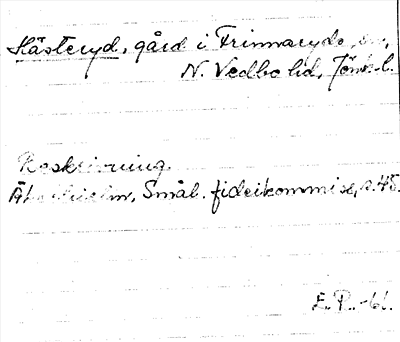 Hästeryd, gård i Frinnaryds sn,
N. Vedbo hd, Jönk. l.
Beskrivning
Smål. fideikommisse, s. 45.
E. P. -61.